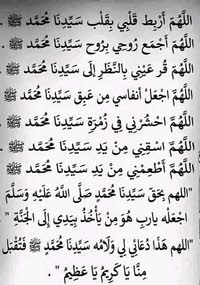 اللَّهُمَّ أَرْبِط قَلْبِي بِقَلْب سَيِّدِنَا مُحَمَّد ﷺ .
اللَّهُمَّ أَجْمَع رُوحِي بِرُوح سَيِّدِنَا مُحَمَّد ﷺ .
اللَّهُمَّ قُر عَيْنِي بِالنَّظَرِ إِلَى سَيِّدِنَا مُحَمَّد ﷺ .
اللَّهُمَّ اجْعَلْ أنفاسي مِن عَبِق سَيِّدِنَا مُحَمَّد ﷺ .
اللَّهُمَّ احْشُرْنِي فِي زُمْرَة سَيِّدِنَا مُحَمَّد ﷺ .
اللَّهُمَّ اسْقِنِي مِنْ يَدِ سَيِّدِنَا مُحَمَّد ﷺ .
اللَّهُمَّ أَطْعِمْنِي مِنْ يَدِ سَيِّدِنَا مُحَمَّد ﷺ .
"اللهم بِحَق سَيِّدِنَا مُحَمَّدٍ صَلَّى اللَّهُ عَلَيْهِ وَسَلَّمَ
اجْعَلْه يارب هُوَ مِنْ يَأْخُذُ بِيَدِي إِلَى الْجَنَّةِ "
"اللهم هَذَا دُعَائِي لِي وَلِأُمه سَيِّدِنَا مُحَمَّدٍ ﷺ فَتُقْبَل
مِنَّا يَا كَرِيمُ يَا عَظِيمُ " .